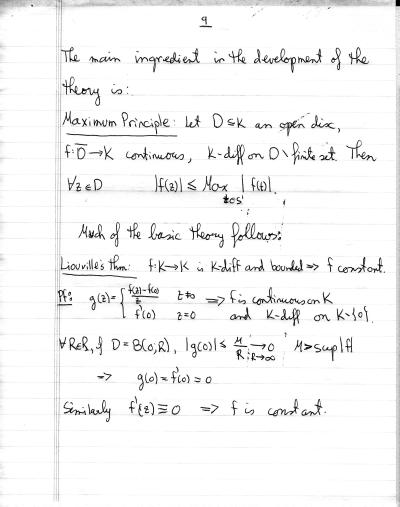 9
The main ingredient in the development of the
theory is:
Maximum Principle: Let D ⊆ K an open disc,
f: D̄ → K continuous, K-diff on D \ finite set. Then
∀z ∈ D |f(z)| ≤ Max |f(t)|.
Much of the basic theory follows:
Liouville's Thm: f: K → K is K-diff and bounded ⇒ f constant.
Pf: g(z) = { f(z)-f(0) / z z≠0 ⇒ f is continuous on K
f'(0) z=0 and K-diff on K-{0}.
∀ R∈ℝ, if D = B(0,R), |g(0)| ≤ M/R → 0 R→∞ M > sup|f|
⇒ g(0) = f'(0) = 0
Similarly f'(z) ≡ 0 ⇒ f is constant.